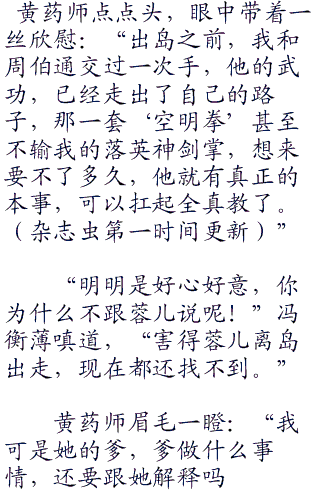 黄药师点点头，眼中带着一
丝欣慰：“出岛之前，我和
周伯通交过一次手，他的武
功，已经走出了自己的路
子，那一套‘空明拳’甚至
不输我的落英神剑掌，想来
要不了多久，他就有真正的
本事，可以扛起全真教了。
（杂志虫第一时间更新）”
“明明是好心好意，你
为什么不跟蓉儿说呢！”冯
衡薄嗔道，“害得蓉儿离岛
出走，现在都还找不到。”
黄药师眉毛一瞪：“我
可是她的爹，爹做什么事
情，还要跟她解释吗